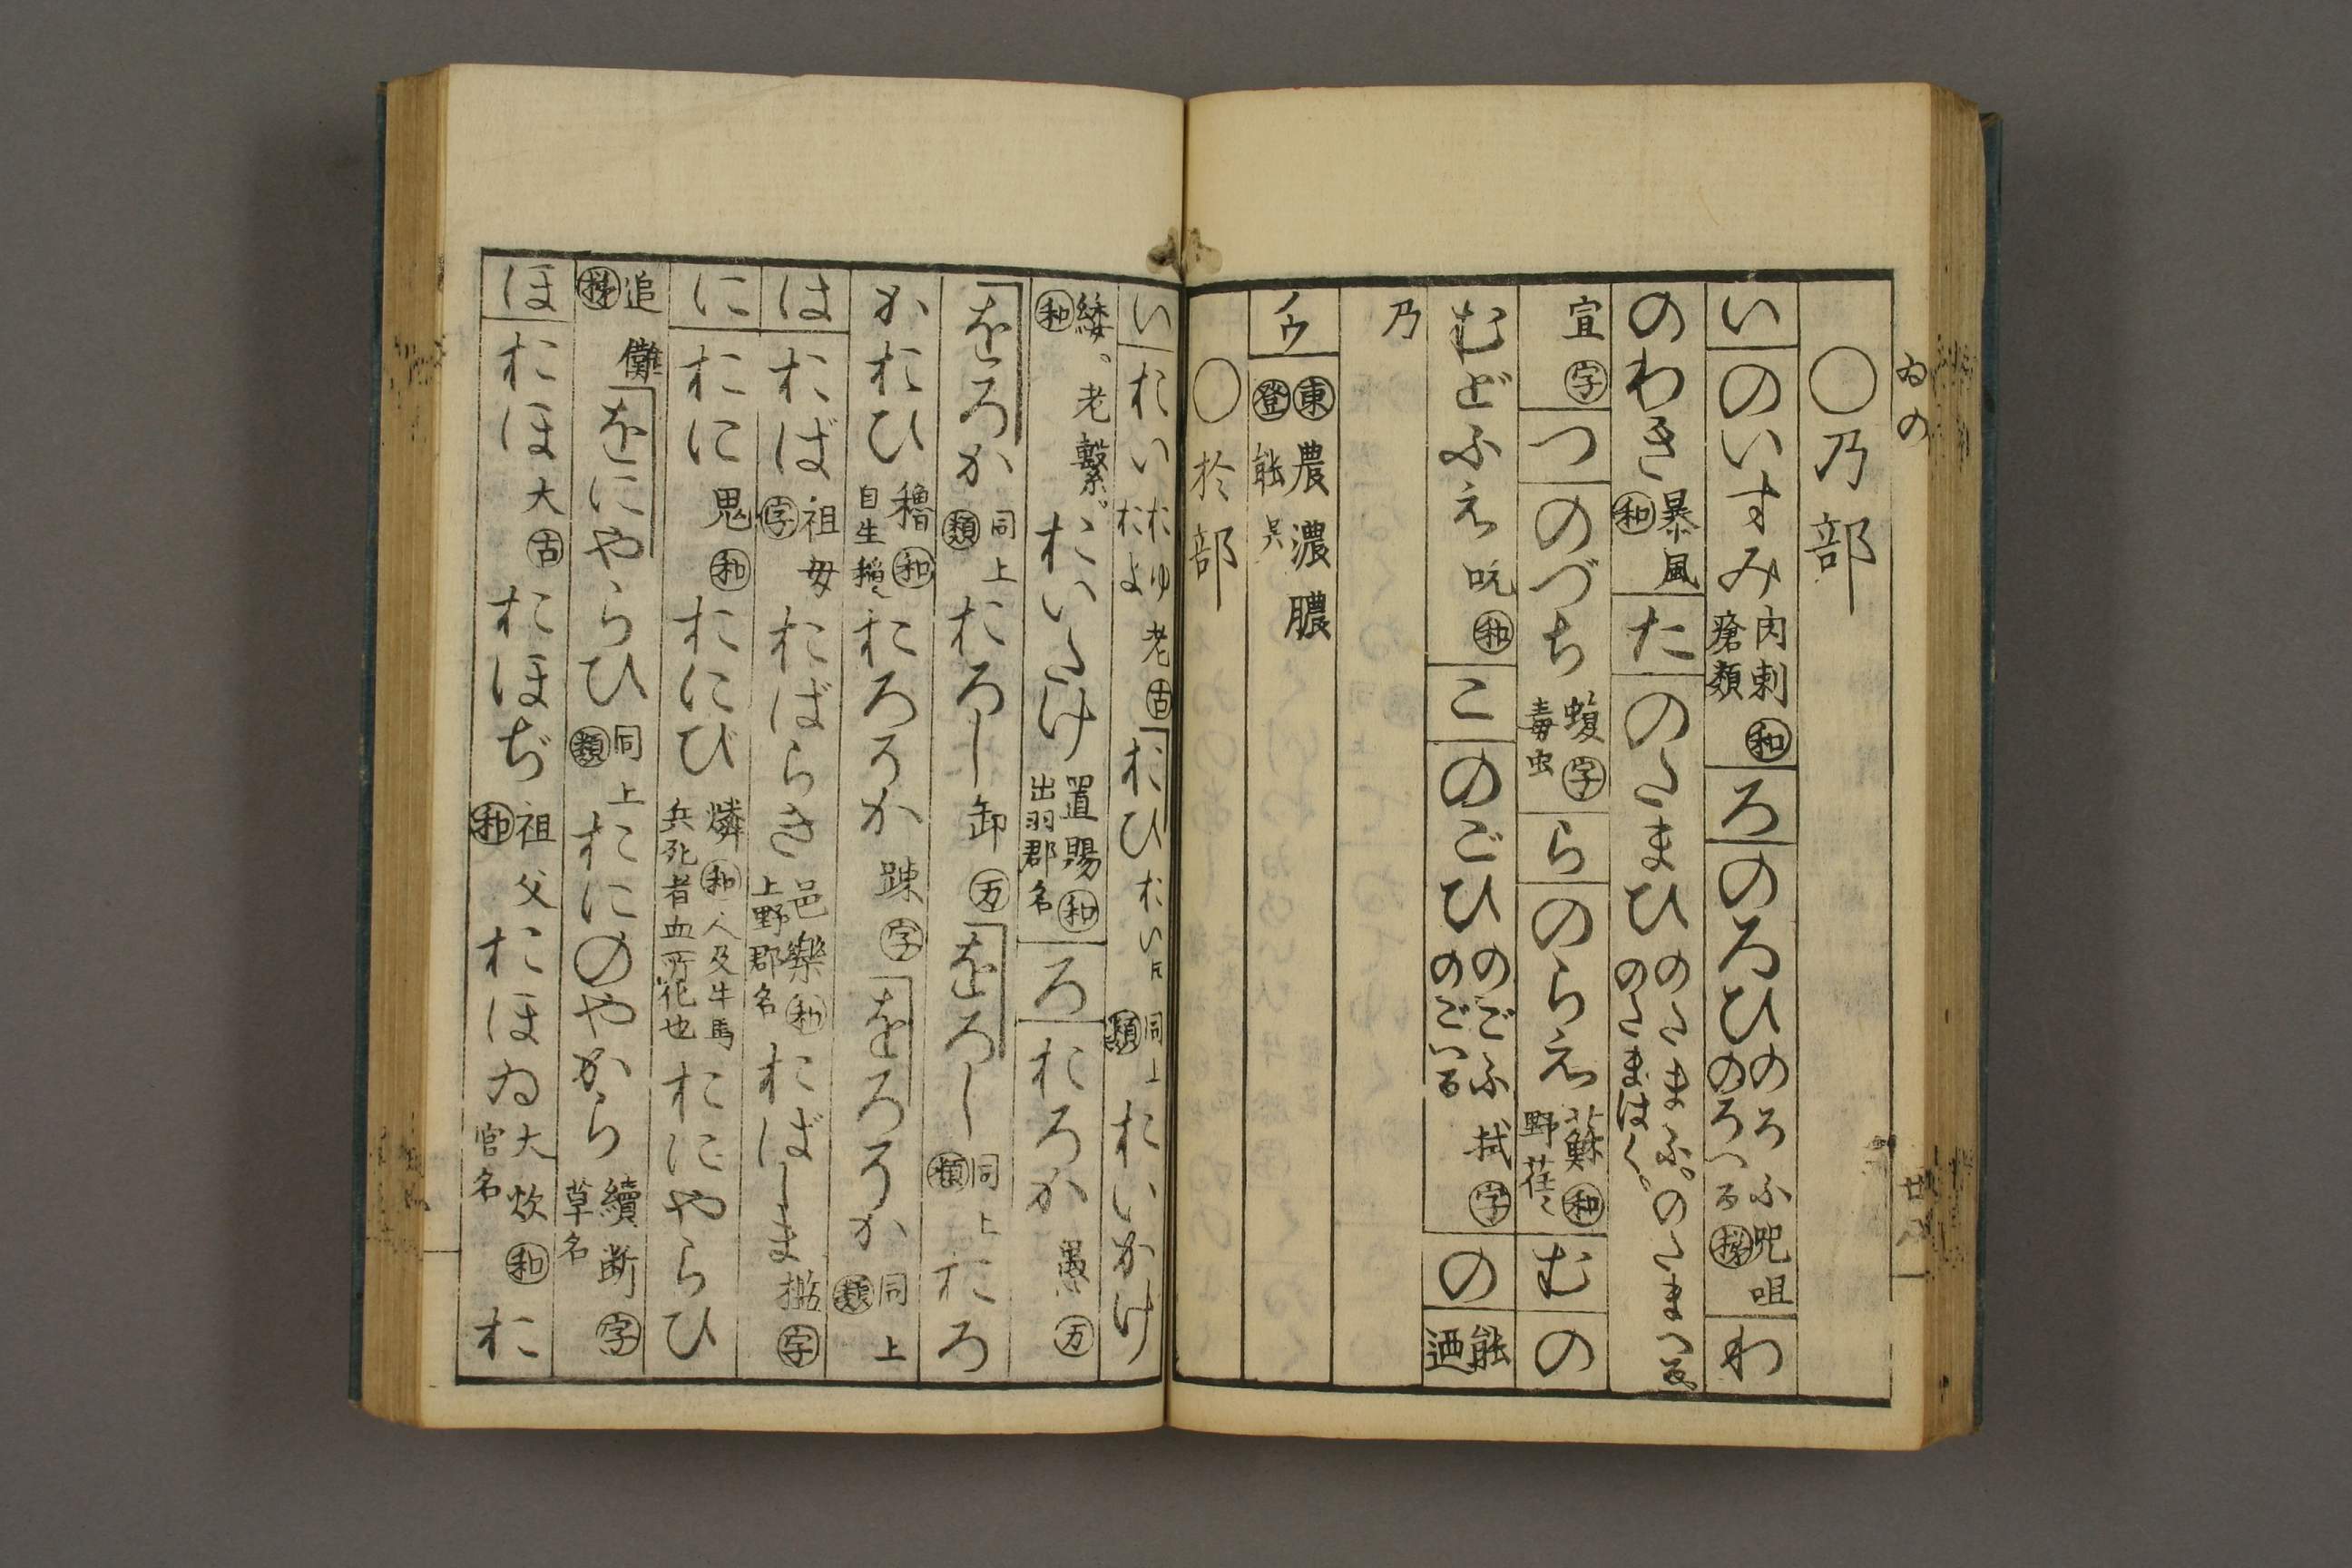 ゐの
廿八
○乃部
い のいすみ 肉刺 瘡類 ㊒和 ろ のろひ のろふ のろへる 呪咀 わ
のわき 暴風 和 た のたまひ のたまふ。のたまへる のたまはく。
宣 字 つ のづち 蝮 字 毒虫 ら のらえ 蘇 和 野荏〻 む の
むどふえ 吭 和 こ のごひ のごふ のごへる 拭 字 の 能 迺
乃
ノウ 東 農 濃 膿 登 能 呉
○於部
い おい おゆ およ 老 古 おひ おい 同上 類 おいかけ
緌、老繫。和 おいたけ 置賜 和 出羽郡名 ろ おろか 愚 万
をろか 同上 類 おろし 卸 万 をろし 同上 類 おろ
かおひ 穭 和 自生稲〻 おろろか 踈 字 をろろか 同上 類
は おば 祖母 字 おばらき 邑樂 和 上野郡名 おばしま 字
に おに 鬼 和 おにび 燐 和 人及牛馬兵死者血所化也 おにやらひ
追儺 をにやらひ 同上 類 おにのやから 續断 字 草名
ほ おほ 大 古 おほぢ 祖父 和 おほゐ 大炊 和 官名 お